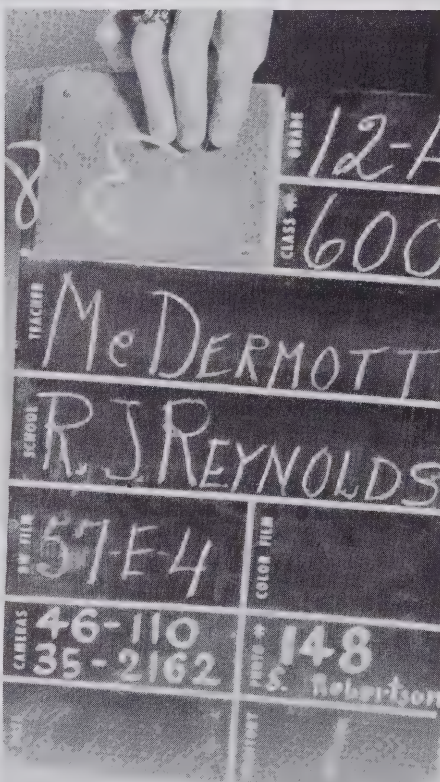 8
GRADE 12-A
CLASS # 600
TEACHER McDERMOTT
SCHOOL R.J. REYNOLDS
BW FILM 57-E-4
COLOR FILM
CAMERAS 46-110
35-2162
PHOTO # 148
S. Robertson